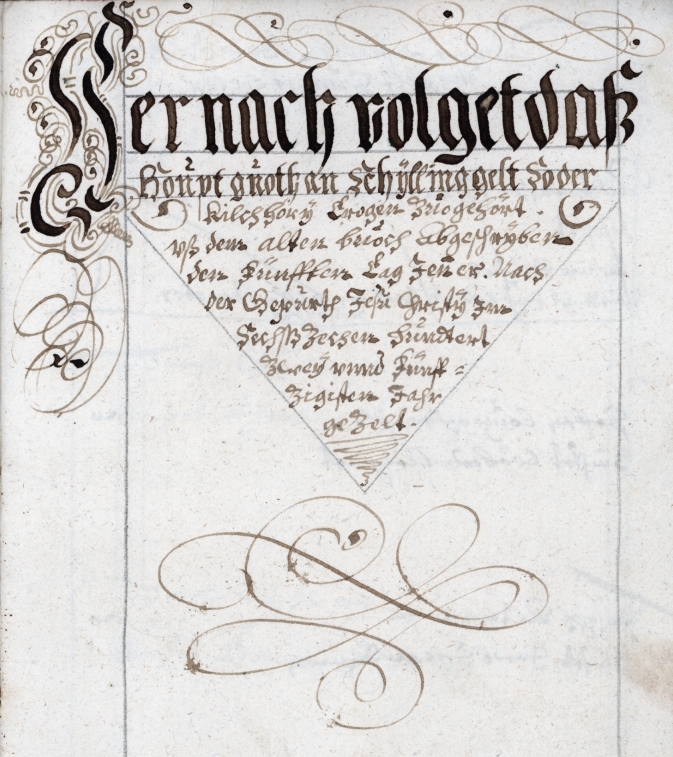 Hernach volget daß
Houpt guoth an Schyllinggelt So der
Kilchhöry Trogen Zuogehört.
uß dem alten buoch Abgeschryben
den Fünfften Tag Jener. Nach
der Gepurth Jesu Christy Im
Sechß Zechen hundert
Zwey unnd Fünff =
Zigisten Jahr
geZelt.